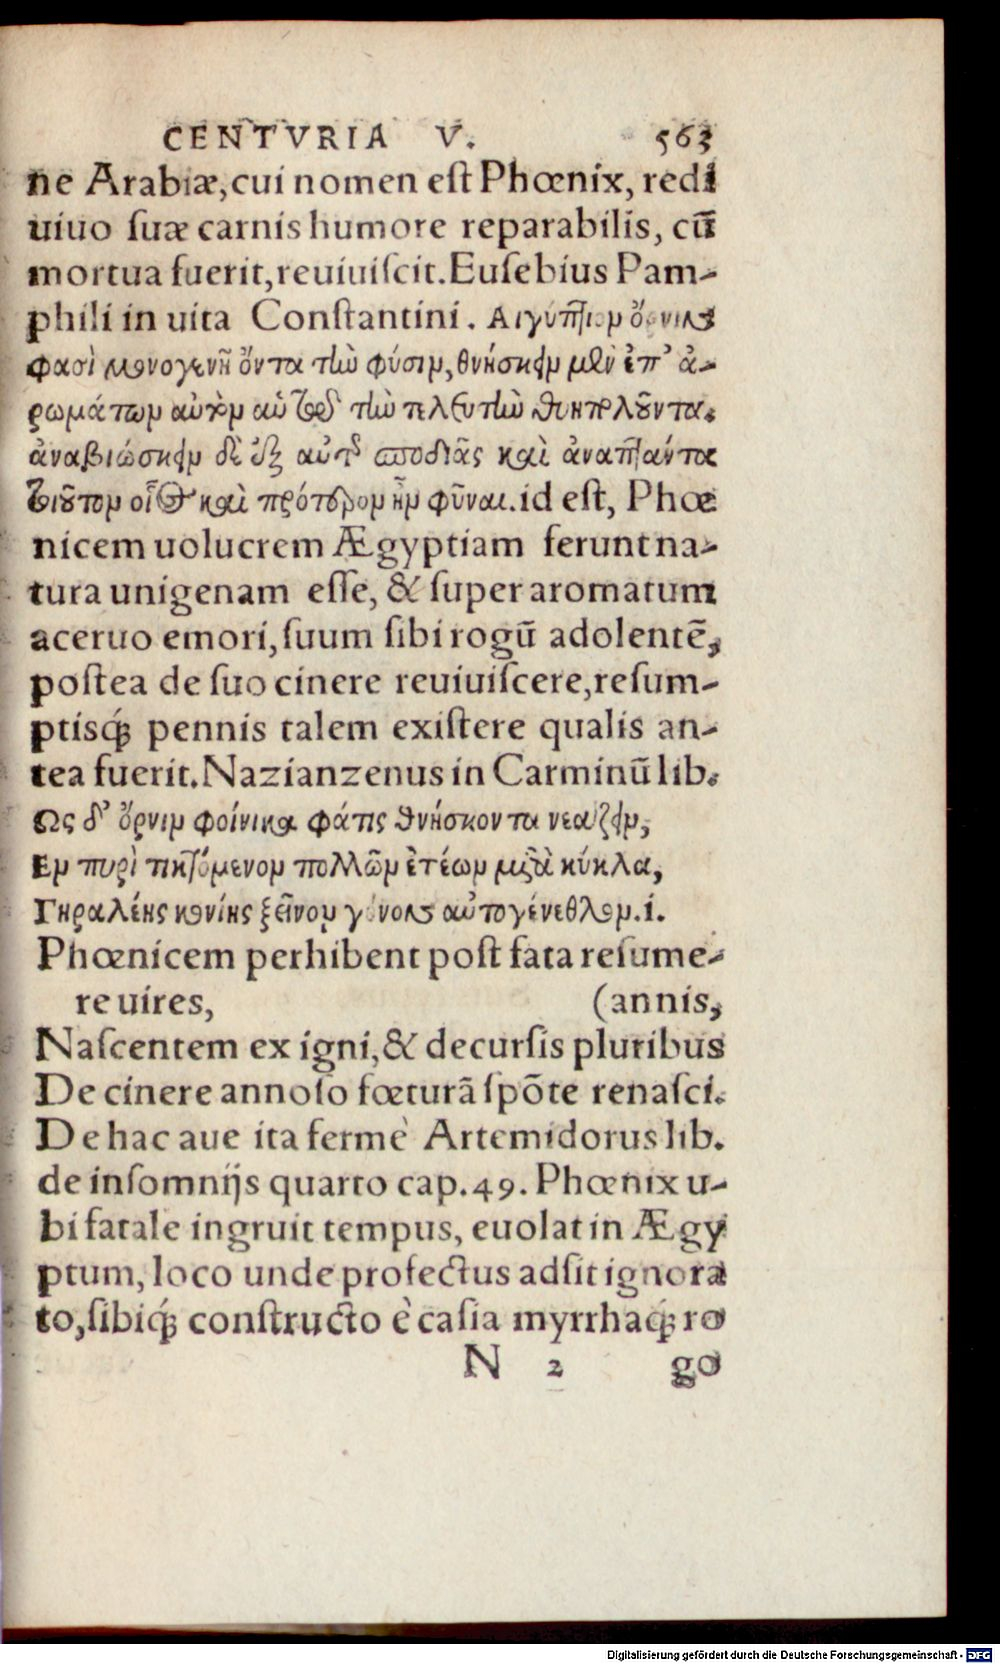 CENTVRIA V. 563
ne Arabiæ, cui nomen est Phœnix, redi
uiuo suæ carnis humore reparabilis, cū
mortua fuerit, reuiuiscit. Eusebius Pam-
phili in uita Constantini. Αἰγύπτιον ὄρνιν
φασὶ μονογενῆ ὄντα τὴν φύσιν, θνήσκειν μὲν ἐπ' ἀ-
ρωμάτων αὐτὸν αὑτῷ τὴν τελευτὴν θυηπολοῦντα.
ἀναβιώσκειν δὲ ἐξ αὐτῆς σποδιᾶς καὶ ἀναπτάντα
τοιοῦτον οἷος καὶ πρότερον ἦν φῦναι. id est, Phœ
nicem uolucrem Ægyptiam ferunt na-
tura unigenam esse, & super aromatum
aceruo emori, suum sibi rogū adolentē,
postea de suo cinere reuiuiscere, resum-
ptisq́; pennis talem existere qualis an-
tea fuerit. Nazianzenus in Carminū lib.
Ως δ' ὄρνιν φοίνικα φάτις θνήσκοντα νεάζειν,
Εν πυρὶ τικτόμενον πολλῶν ἐτέων μετὰ κύκλα,
Γηραλέης κονίης ξεῖνον γόνον αὐτογένεθλον. i.
Phœnicem perhibent post fata resume-
re uires, (annis,
Nascentem ex igni, & decursis pluribus
De cinere annoso fœturā spōte renasci.
De hac aue ita fermè Artemidorus lib.
de insomnijs quarto cap. 49. Phœnix u-
bi fatale ingruit tempus, euolat in Ægy
ptum, loco unde profectus adsit ignora
to, sibiq́; constructo è casia myrrhaq́; ro
N 2 go
Digitalisierung gefördert durch die Deutsche Forschungsgemeinschaft - DFG